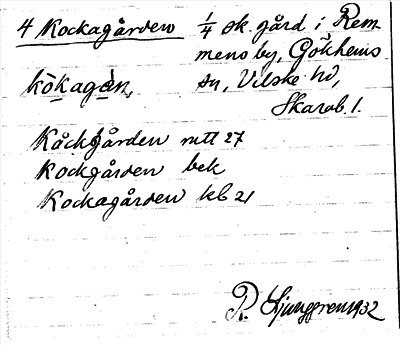 4 Kockagården 1/4 sk. gård i Rem-
mens by, Gökhems
sn, Vilske hd,
Skarab. l.
kòkagàn,
Kåckgården mtl 27
Kockgården bek
Kockagården kb 21
R. Ljunggren 1932